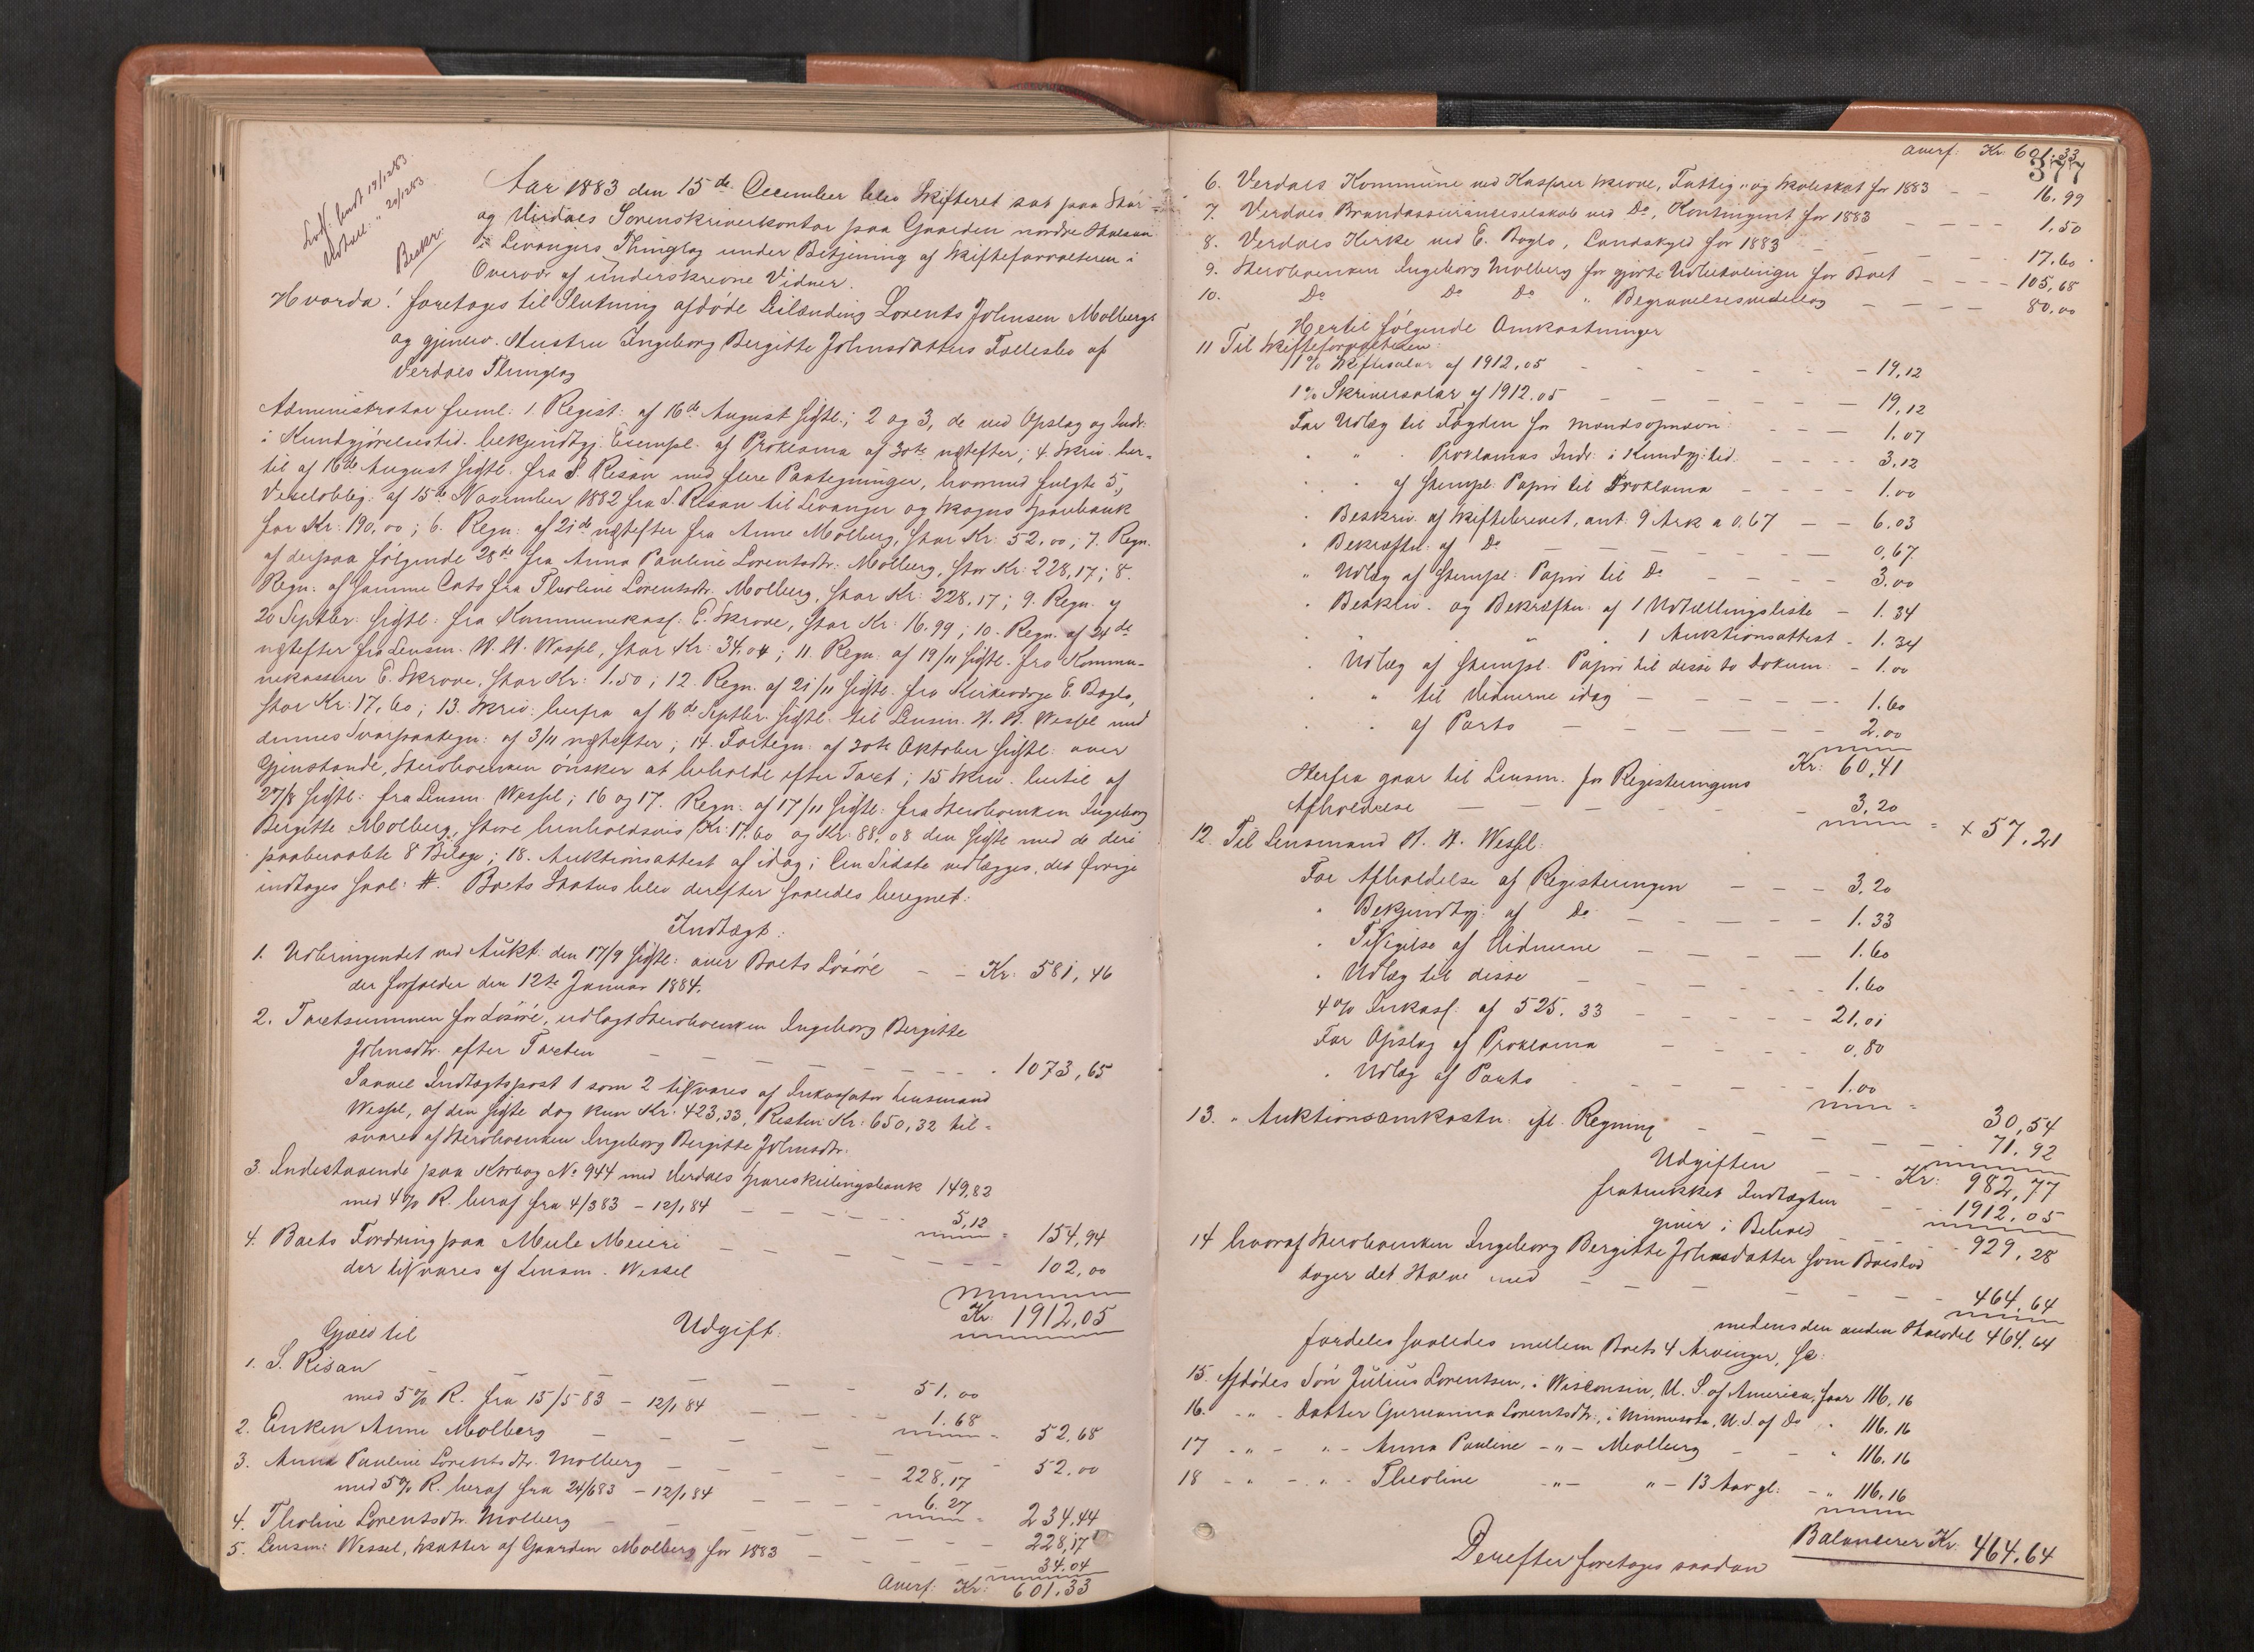 Lodf. sendt 19/12 83
Udtall. " 20/12 83
Beskr:
Aar 1883 den 15de December blev Skifteret sat paa Stør-
og Værdals Sorenskriverkontor paa Gaarden nordre Halsan
i Levangers Thinglag under Betjening af Skifteforvalteren i
Overvær af underskrevne Vidner.
Hvorda! foretoges til Slutning afdøde Leilænding Lorents Johnsen Molbergs
og gjenlev. Hustru Ingeborg Bergitte Johnsdatters Fællesbo af
Verdals Thinglag
Administrator freml: 1. Regist: af 16de August sidstl:; 2 og 3, de ved Opslag og Indr:
i Kundgjørelsestid. bekjendtgj: Exempl. af Proklama af 30te næstefter; 4. Skriv. her-
til af 16de August sidstl. fra S. Risan med flere Paategninger, hvormed fulgte 5,
Vexeloblig: af 15de November 1882 fra S. Risan til Levanger og Skogns Sparebank
for Kr: 190,00; 6. Regn: af 21de næstefter fra Anne Molberg, stor Kr: 52,00; 7. Regn.
af derpaa følgende 28de fra Anna Pauline Lorentsdtr: Molberg, stor Kr: 228,17; 8.
Regn: af samme Dato fra Theoline Lorentsdtr. Molberg, stor Kr: 228,17; 9. Regn. af
20 Septbr: sidstl: fra Kommunekass. E. Skrove, stor Kr: 16,99; 10. Regn. af 24de
næstefter fra Lensm. W. H. Wessel, stor Kr: 34,04; 11. Regn: af 19/11 sidstl. fra Kommu-
nekasserer E. Skrove, stor Kr: 1.50; 12. Regn. af 21/11 sidstl. fra Kirkeværge E. Baglo,
stor Kr: 17,60; 13. Skriv: herfra af 16de Septbr: sidstl. til Lensm. H. H. Wessel med
dennes Svarpaategn: af 3/11 næstefter; 14. Fortegn: af 30te Oktober sidstl: over
Gjenstande, Sterboenken ønsker at beholde efter Taxt; 15 Skriv. hertil af
27/8 sidstl: fra Lensm Wessel; 16 og 17. Regn: af 17/11 sidstl: fra Sterboenken Ingeborg
Bergitte Molberg, store henholdsvis Kr: 17,60 og Kr: 88,08 den sidste med de deri
paaberaabte 8 Bilage; 18. Auktionsattest af idag; Den Sidste vedlægges, det øvrige
indtages saal: #. Boets Status blev derefter saaledes beregnet:
Indtægt:
1. Udbringendet ved Aukt: den 17/9 sidstl: over Boets Løsøre - - Kr: 581,46
der forfalder den 12te Januar 1884.
2. Taxtsummen for Løsøre, udlagt Sterboenken Ingeborg Bergitte
Johnsdtr. efter Taxten - - - - - - 1073,65
Saavel Indtægtspost 1 som 2 tilsvares af Inkassator Lensmand
Wessel, af den sidste dog kun Kr: 423,33, Resten Kr: 650,32 til-
svares af Sterboenken Ingeborg Bergitte Johnsdtr.
3. Indestaaende paa Kontobog No 944 med Værdals Spareskillingsbank 149,82
med 4% R. heraf fra 4/3 83 - 12/1 84 - - - - 5,12 = 154,94
4. Boets Fordring paa Mule Meieri - - - - - 102,00
der tilsvares af Lensm. Wessel
Kr: 1912,05
Udgift:
Gjæld til
1. S. Risan - - - - - 51,00
med 5% R. fra 15/5 83 - 12/1 84 - - - 1.68 = 52,68
2. Enken Anne Molberg - - - - - 52,00
3. Anna Pauline Lorentsdtr. Molberg - - - 228,17
med 5% R. heraf fra 24/6 83 - 12/1 84 - - - 6.27 = 234,44
4. Theoline Lorentsdtr. Molberg - - - - - 228,17
5. Lensm: Wessel, Skatter af Gaarden Molberg for 1883 - - - - 34.04
Overf: Kr: 601.33
377
Overf. Kr: 601.33
6. Verdals Kommune ved Kasserer Skrove, Fattig- og Skoleskat for 1883 - - 16,99
7. Verdals Brandassuranceselskab ved Do, Kontingent for 1883 - - - 1,50
8. Verdals Kirke ved E. Baglo, Landskyld for 1883 - - - - 17.60
9. Sterboenken Ingeborg Molberg for gjorte Udbetalinger for Boet - - - 105,68
10. Do Do Do " Begravelsesvederlag - - - - 80,00
Hertil følgende Omkostninger
11 Til Skifteforvalteren:
1% Skiftesalær af 1912,05 - - - - - 19,12
1% Skriversalær af 1912.05 - - - - - 19,12
For Udlæg til Fogden for Mandsopnævn: - - - 1.07
" " Proklamas Indr: i Kundgj: tid. - - - 3,12
" " af stempl: Papir til Proklama - - - - 1.00
" Beskriv. af Skiftebrevet, ant: 9 Ark a 0,67 - - 6.03
" Bekræftel: af Do - - - - - - 0,67
" Udlæg af stempl: Papir til Do - - - - 3.00
" Beskriv. og Bekræftn. af 1 Udtællingsliste - 1.34
" " " " 1 Auktionsattest - 1.34
" Udlæg af stempl. Papir til disse to Dokum: - 1.00
" " til Vidnerne idag - - - - - 1.60
" " af Porto - - - - - - 2.00
Kr: 60,41
Herfra gaar til Lensm. for Registeringens
Afholdelse - - - - - 3,20 = × 57.21
12. Til Lensmand H. H. Wessel:
For Afholdelse af Registeringen - - - 3.20
" Bekjendtgj: af Do - - - - - 1.33
" Tilsigelse af Vidnerne - - - - - 1.60
" Udlæg til disse - - - - - 1.60
4% Inkass: af 525.33 - - - - - 21,01
For Opslag af Proklama - - - - 0,80
" Udlæg af Porto - - - - - 1.00 = 30,54
13. " Auktionsomkostn: ifl. Regning - - - - - 71.92
Udgiften - - - Kr: 982,77
fratrukket Indtægten - - 1912.05
giver i Behold - - - 929,28
14 hvoraf Sterboenken Ingeborg Bergitte Johnsdatter som Boeslod
tager det Halve med - - - - - - 464,64
medens den anden Halvdel 464,64
fordeles saaledes mellem Boets 4 Arvinger, sc:
15. Afdødes Søn Julius Lorentsen, i Wisconsin, U. S. of America, faar 116,16
16. - " - Datter Gurueanna Lorentsdtr., i Minnesota, U. S. of Do " 116.16
17 - " - " - Anna Pauline - " - Molberg - - " 116.16
18 - " - " - Theoline - " - " - 13 Aar gl: - " 116,16
Balancerer Kr: 464,64
Derefter foretoges saadan